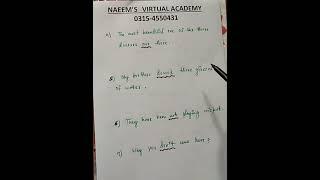 NAEEM'S VIRTUAL ACADEMY
0315-4550431
4) The most beautiful one of the three
dresses are here.
5) My brother drink three glasses
of water.
6) They have been not playing cricket.
7) Why you didn't come here?